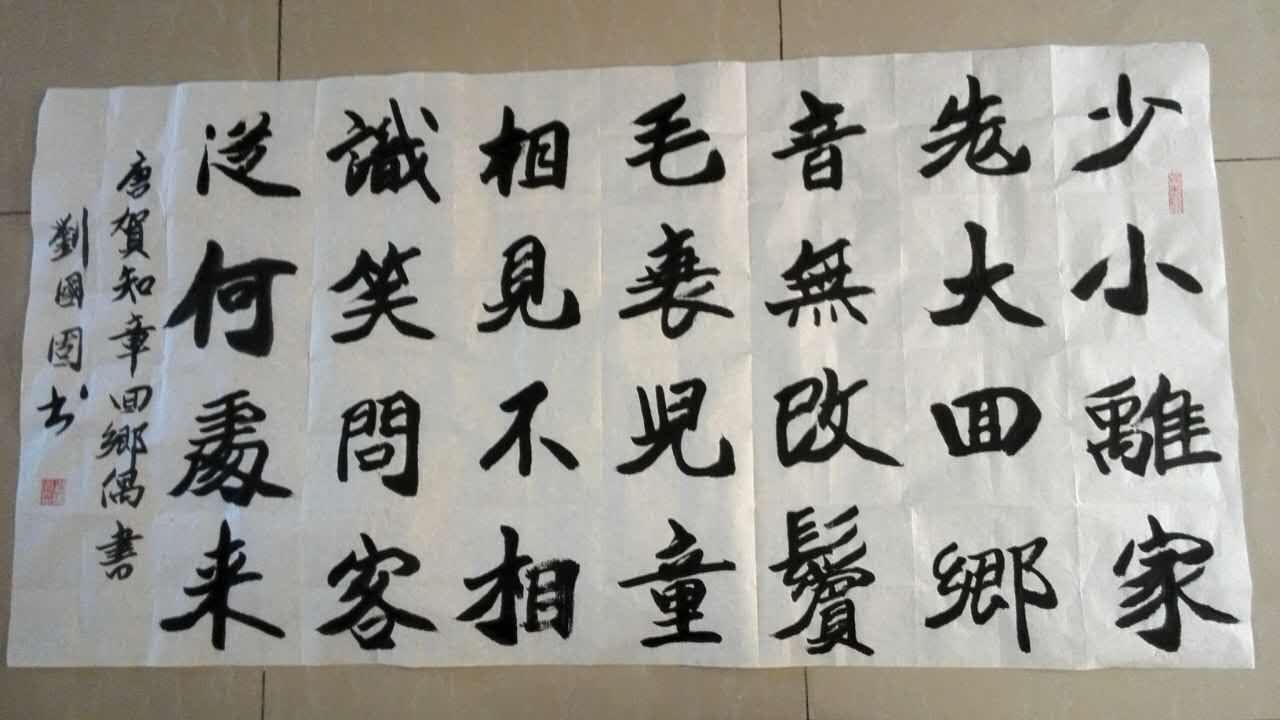 少小離家
老大回鄉
音無改鬢
毛衰兒童
相見不相
識笑問客
從何處来
唐賀知章回鄉偶書
劉國固书